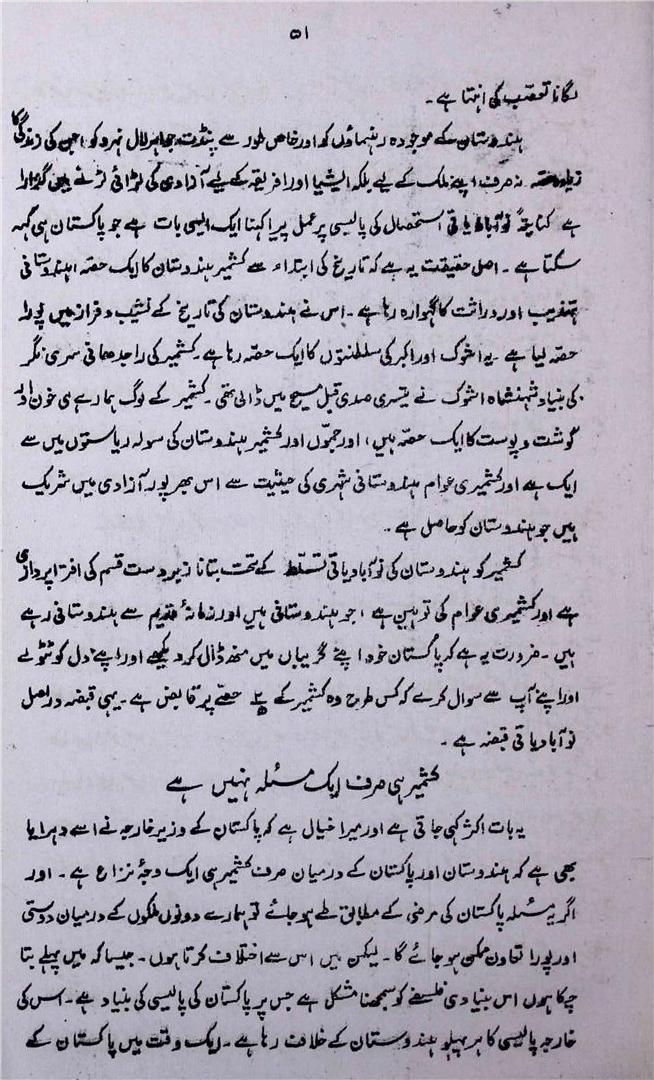 ۵۱
لگانا تعصب کی انتہا ہے۔
ہندوستان کے موجودہ رہنماؤں کو اور خاص طور سے پنڈت جواہر لال نہرو کو، جن کی زندگی کا
زیادہ حصہ نہ صرف اپنے ملک کے لیے بلکہ ایشیا اور افریقہ کے لیے آزادی کی لڑائی لڑنے میں گذرا
ہے کنایۃً نوآبادیاتی استحصال کی پالیسی پر عمل پیرا کہنا ایک ایسی بات ہے جو پاکستان ہی کہہ
سکتا ہے۔ اصل حقیقت یہ ہے کہ تاریخ کی ابتداء سے کشمیر ہندوستان کا ایک حصہ، ہندوستانی
تہذیب اور وراثت کا گہوارہ رہا ہے۔ اس نے ہندوستان کی تاریخ کے نشیب و فراز میں پورا
حصہ لیا ہے۔ یہ اشوک اور اکبر کی سلطنتوں کا ایک حصہ رہا ہے۔ کشمیر کی راجدھانی سری نگر
کی بنیاد شہنشاہ اشوک نے تیسری صدی قبل مسیح میں ڈالی تھی۔ کشمیر کے لوگ ہمارے ہی خون اور
گوشت و پوست کا ایک حصہ ہیں، اور جموں اور کشمیر ہندوستان کی سولہ ریاستوں میں سے
ایک ہے اور کشمیری عوام ہندوستانی شہری کی حیثیت سے اس بھرپور آزادی میں شریک
ہیں جو ہندوستان کو حاصل ہے۔
کشمیر کو ہندوستان کی نوآبادیاتی تسلط کے تحت بتانا زبردست قسم کی افترا پردازی
ہے اور کشمیری عوام کی توہین ہے، جو ہندوستانی ہیں اور زمانۂ قدیم سے ہندوستانی رہے
ہیں۔ ضرورت یہ ہے کہ پاکستان خود اپنے گریباں میں منھ ڈال کر دیکھے اور اپنے دل کو ٹٹولے
اور اپنے آپ سے سوال کرے کہ کس طرح وہ کشمیر کے حصے پر قابض ہے۔ یہی قبضہ دراصل
نوآبادیاتی قبضہ ہے۔
کشمیر ہی صرف ایک مسئلہ نہیں ہے
یہ بات اکثر کہی جاتی ہے اور میرا خیال ہے کہ پاکستان کے وزیر خارجہ نے اسے دہرایا
بھی ہے کہ ہندوستان اور پاکستان کے درمیان صرف کشمیر ہی ایک وجۂ نزاع ہے۔ اور
اگر یہ مسئلہ پاکستان کی مرضی کے مطابق طے ہو جائے تو ہمارے دونوں ملکوں کے درمیان دوستی
اور پورا تعاون ممکن ہو جائے گا۔ لیکن میں اس سے اختلاف کرتا ہوں۔ جیسا کہ میں پہلے بتا
چکا ہوں اس بنیادی فلسفے کو سمجھنا مشکل ہے جس پر پاکستان کی پالیسی کی بنیاد ہے۔ اس کی
خارجہ پالیسی کا ہر پہلو ہندوستان کے خلاف رہا ہے۔ ایک وقت میں پاکستان کے